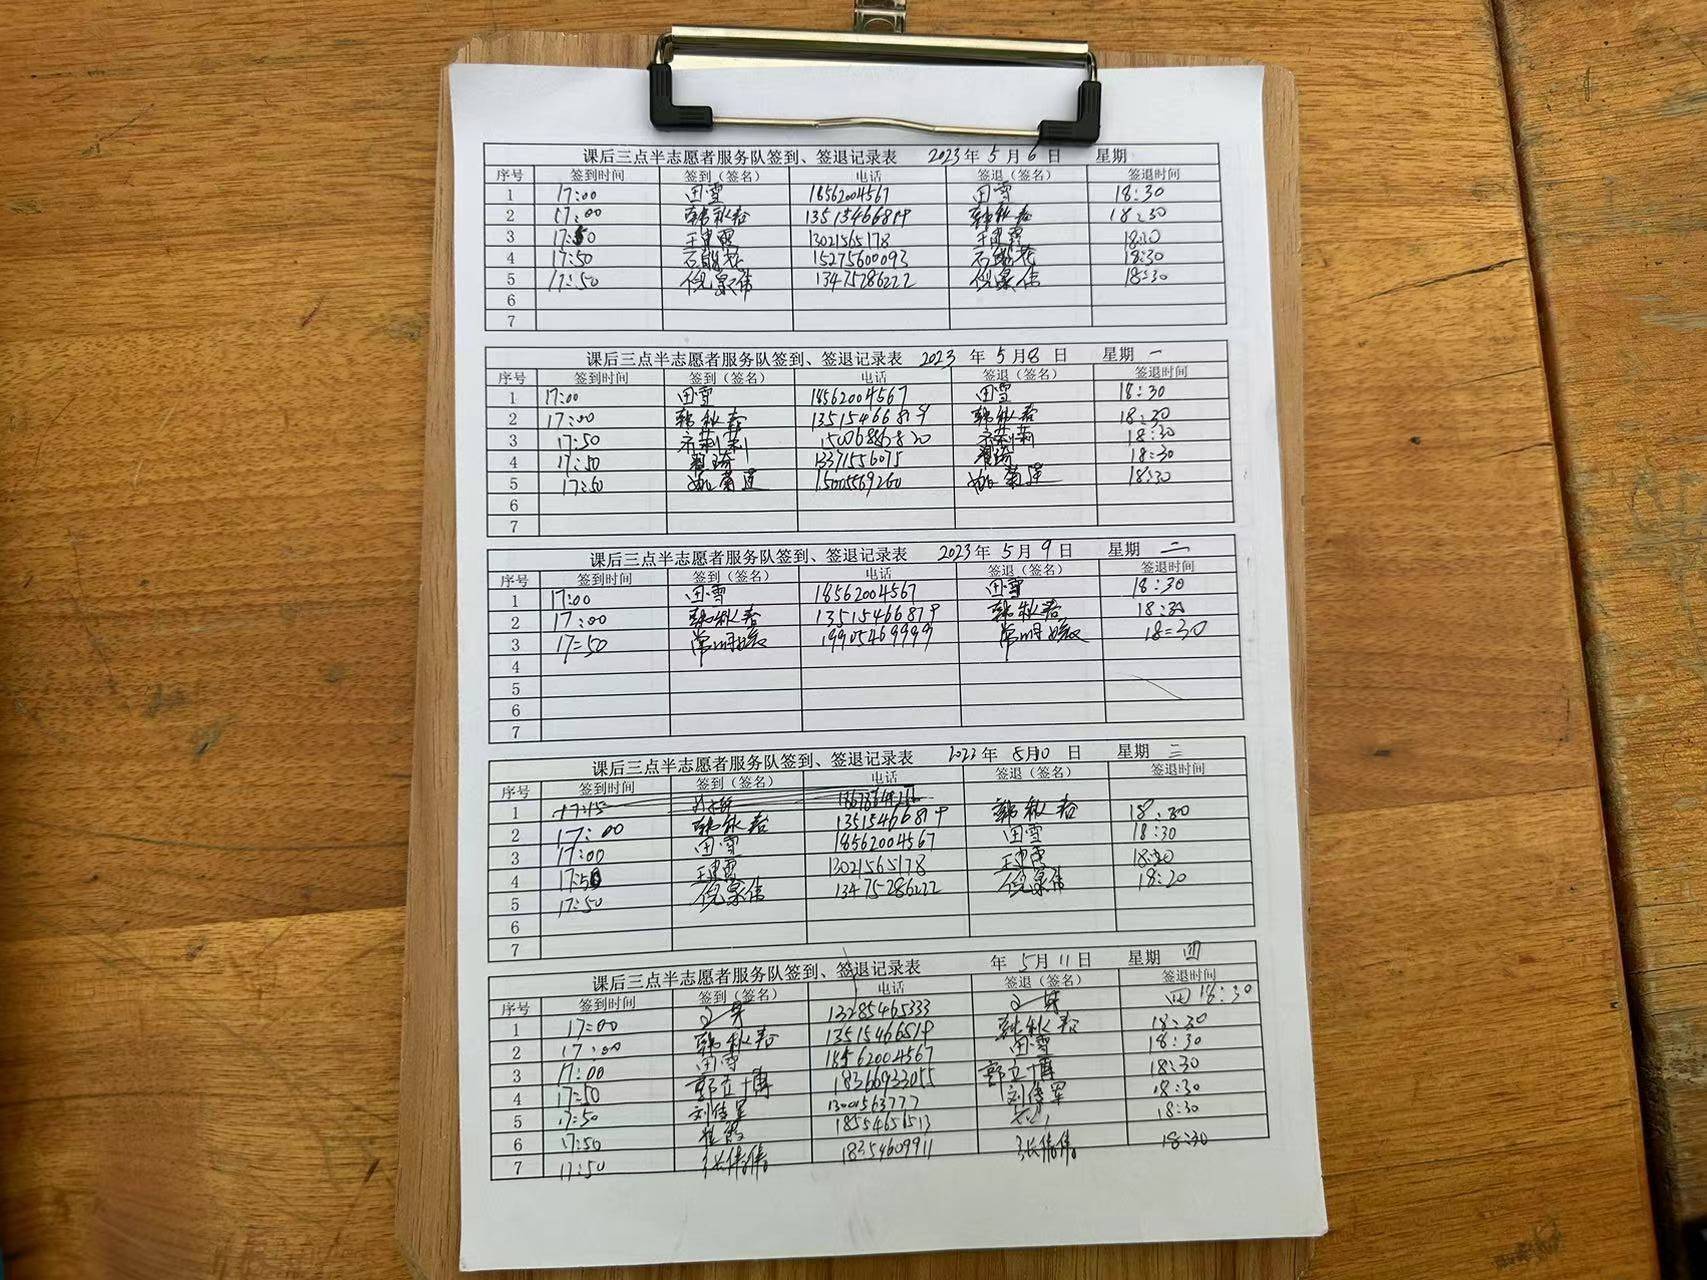 课后三点半志愿者服务队签到、签退记录表 2023年5月6日 星期
序号 签到时间 签到（签名） 电话 签退（签名） 签退时间
1 17:00 田雪 18562004567 田雪 18:30
2 17:00 韩秋春 韩秋春 18:30
3 17:50 王建霞 13021565178 王建霞
4 17:50 15275600093 18:30
5 17:50 倪泉伟 13475286222 倪泉伟 18:30
6
7
课后三点半志愿者服务队签到、签退记录表 2023 年5月8日 星期 一
序号 签到时间 签到（签名） 电话 签退（签名） 签退时间
1 17:00 田雪 18562004567 田雪 18:30
2 17:00 韩秋春 韩秋春 18:30
3 17:50 18:30
4 17:50 13371556075 18:30
5 17:50 姚菊莲 15005569260 姚菊莲 18:30
6
7
课后三点半志愿者服务队签到、签退记录表 2023年5月9日 星期 二
序号 签到时间 签到（签名） 电话 签退（签名） 签退时间
1 17:00 田雪 18562004567 田雪 18:30
2 17:00 韩秋春 韩秋春 18:30
3 17=50 19905469999 18=30
4
5
6
7
课后三点半志愿者服务队签到、签退记录表 2023年 日 星期
序号 签到时间 签到（签名） 电话 签退（签名） 签退时间
1 17:45 韩秋春 18:30
2 17:00 韩秋春 田雪 18:30
3 17:00 田雪 18562004567 王建霞
4 17:50 王建霞 13021565178 倪泉伟 18:20
5 17:50 倪泉伟 13475286222
6
7
课后三点半志愿者服务队签到、签退记录表 年5月11日 星期 四
序号 签到时间 签到（签名） 电话 签退（签名） 签退时间
1 17:00 13285465333 18:30
2 17:00 韩秋春 韩秋春 18:30
3 17:00 田雪 18562004567 田雪 18:30
4 17:50 郭立博 18366933055 郭立博 18:30
5 17:50 18:30
6 17:50 崔霞 18:30
7 17:50 张倩倩 18354609911 张倩倩 18:30